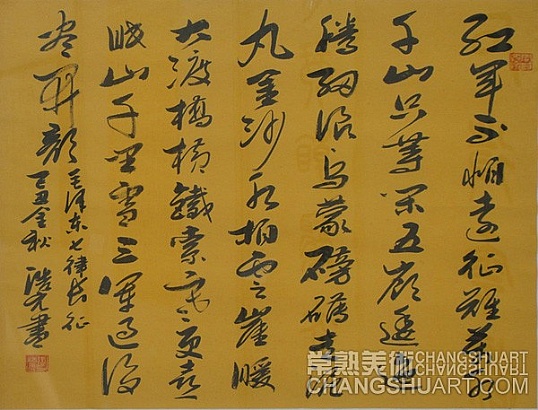 红军不怕遠征難萬水
千山只等闲五岭逶迤
腾细浪乌蒙磅礴走泥
丸金沙水拍云崖暖
大渡橋横鐵索寒更喜
岷山千里雪三軍過後
尽開颜
毛泽东七律长征
丑金秋 浩 書
常熟美術 CHANGSHUART
CHANGSHUART.COM